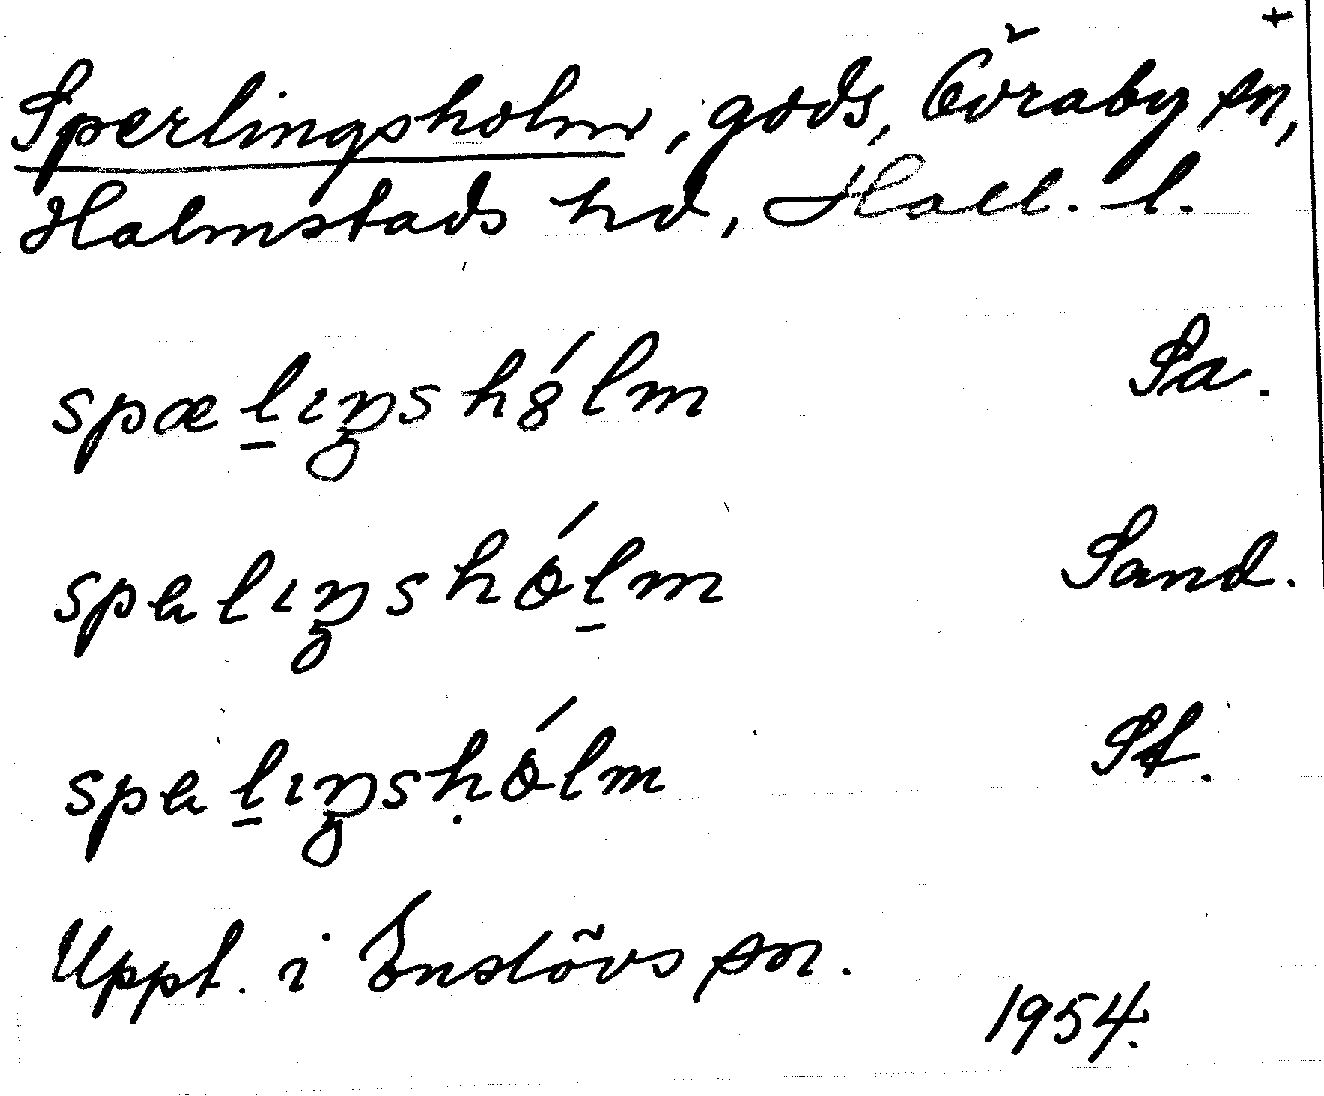 +
Sperlingsholm, gods, Övraby sn,
Halmstads hd, Hall. l.
spæl̠ıŋshólm Sa.
spɐlıŋshól̠m Sand.
spɐl̠ıŋsḥólm St.
Uppt. i Enslövs sn.
1954.